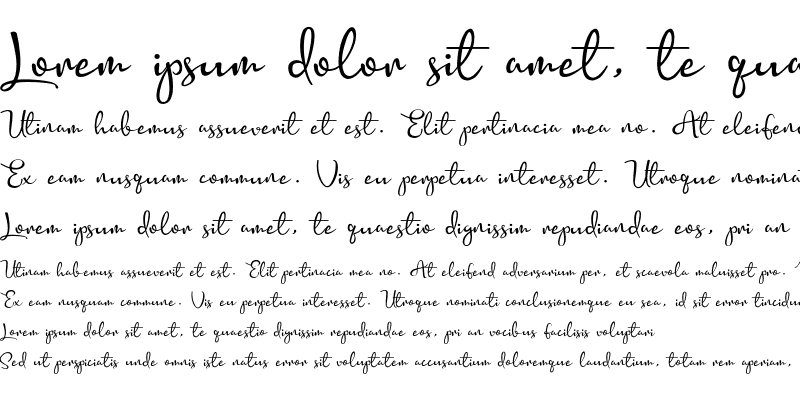 Lorem ipsum dolor sit amet, te qua
Utinam habemus assueverit et est. Elit pertinacia mea no. At eleifend
Ex eam nusquam commune. Vis eu perpetua interesset. Utroque nomina
Lorem ipsum dolor sit amet, te quaestio dignissim repudiandae eos, pri an
Utinam habemus assueverit et est. Elit pertinacia mea no. At eleifend adversarium per, et scaevola maluisset pro.
Ex eam nusquam commune. Vis eu perpetua interesset. Utroque nominati conclusionemque eu sea, id sit error tincidu
Lorem ipsum dolor sit amet, te quaestio dignissim repudiandae eos, pri an vocibus facilisis voluptari
Sed ut perspiciatis unde omnis iste natus error sit voluptatem accusantium doloremque laudantium, totam rem aperiam,